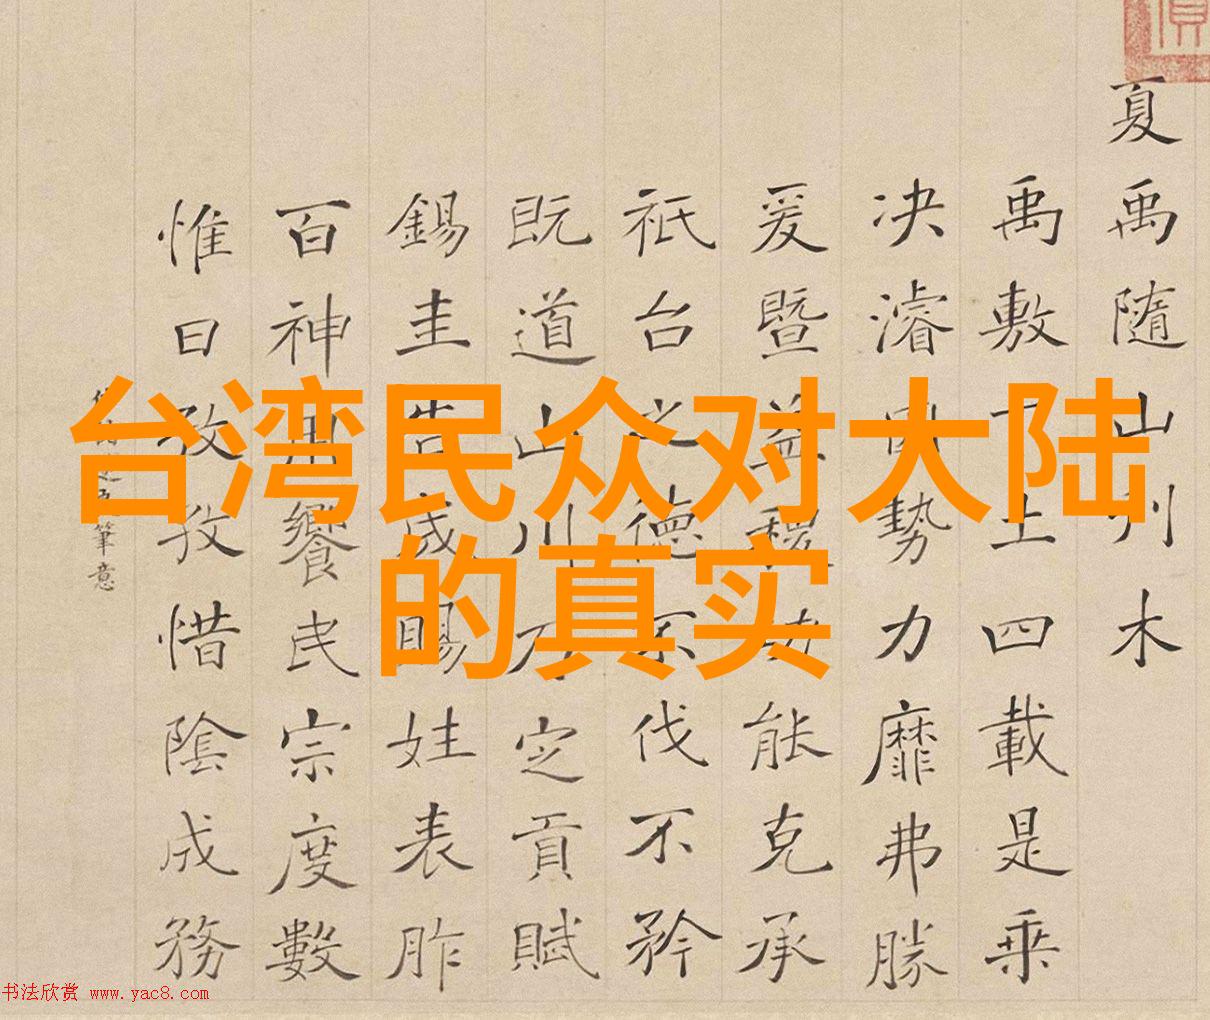 台湾民众对大陆
的真实
夏禹隨山刊木
禹敷下土四載是乘
决濬因勢力靡弗勝
爰暨益稷功能克承
祇台之德不伐不矜
既道山川乃定貢賦
錫圭告成賜姓表胙
百神用饗民宗度數
惟日孜孜惜陰成務
筆意
书法欣赏 www.yac8.com